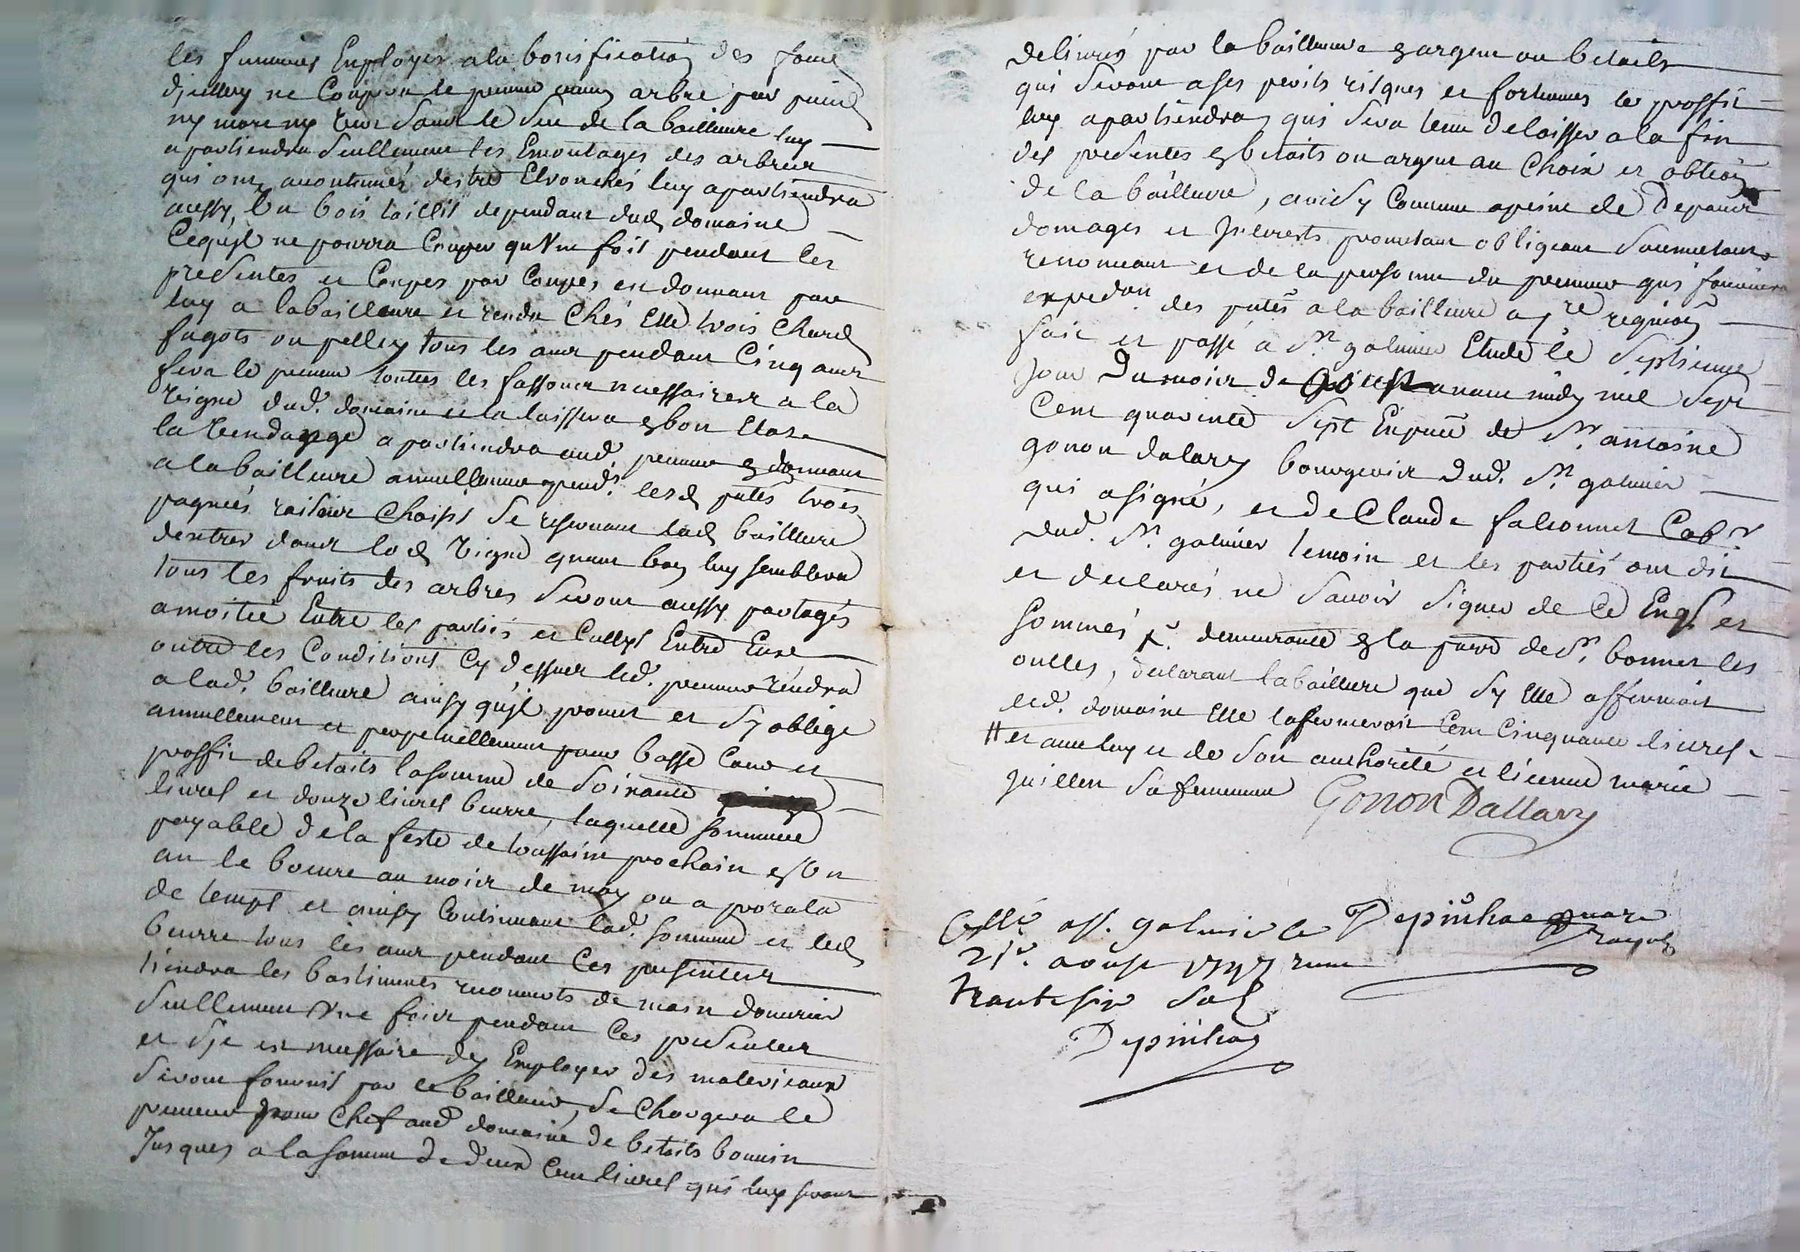 les fumiers Employer a la bonification des fond
d'icelluy ne Coupera le preneur aucun arbre par pied
ny mort ny vif sans le sceu de la bailleure luy
apartiendra seullement les Emontages des arbres
qui ont acoutumés destre Ebronchés luy apartiendra
aussy Un bois taillis dependant dud. domaine
Cequ'jl ne pourra Couper qu'Une fois pendant les
presentes et Coupes par Coupes, en donnant par
luy a labailleure et rendu Chés Elle trois Chard
fagots ou pelley tous les ans pendant Cinq ans
fera le preneur touttes les fassons necessaires a la
vigne dud. domaine et la laissera en bon Etat
la Vendange apartiendra aud. preneur en donnant
a la bailleure annuellement pend. lesd. pntes trois
pagnées raisins Choisis se reservant lad. bailleure
dentrer dans lad. Vigne quant bon luy semblera
tous les fruits des arbres seront aussy partagés
amoitié Entre les parties et Cullys Entre Eux
outre les Conditions Cy dessus led. preneur rendra
a lad. bailleure ainsy qu'jl promet et s'y oblige
annuellement et perpetuellement pour basse Cour et
proffit de betails lasomme de Soixante
livres et douze livres beurre, laquelle somme
payable de la feste de toussaint prochain en Un
an le beurre au mois de may ou a prorata
de temps et ainsy Continuant lad. somme et led.
beurre tous les ans pendant Ces presentes
tiendra les bastiments recouverts de main douvrier
seullement Une fois pendant Ces presentes
et s'jl est necessaire d'y Employer des materieaux
seront fournis par la bailleure, se Chargera le
preneur pour Chef aud. domaine de betails bouvin
Jusques a la somme de deux Cent livres qui luy seront
delivrés par la bailleure en argent ou betails
qui seront a ses perils risques et fortunes le proffit
luy apartiendra, qui sera tenu delaisser a la fin
des presentes en betails ou argent au Choix et obtion
de la bailleure, ainsy Convenu apeine de Depans
domages et Jnterests promettant obligeant soumettant
renonceant et de la personne du preneur qui fournira
expedon. des pntes a la bailleure a pre. requion
fait et passé a St. galmier Etude le septieme
jour Du mois de avant midy mil sept
Cent quarante sept En pnce de Sr. antoine
gonon dalary bourgeois dud. St. galmier
qui a signé, et de Claude falconnet Cab.r
dud. St. galmier temoin et les parties ont dit
et declarés ne savoir signer de Ce Enqs. et
sommés pr. demeurante en la parr. de St. bonnet les
oulles, declarant la bailleure que sy Elle affermoit
led. domaine Elle lafermeroit Cent Cinquante livres
# et avec luy et de son authorité et licence marie
guillen sa femme Gonon Dallary
Collé. aSt. galmier le Depinhac
21e. aoust 1747 recu
trante six sol
Depinhac